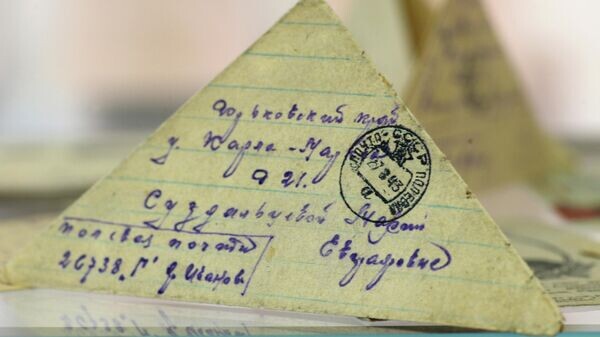 Горьковский край
у Карла-Мар
д 21.
Суздальцевой Марии
Евграфовне
полевая почта
26738 "Г" д. Иванов
ПОЧТА СССР ПОЛЕВАЯ